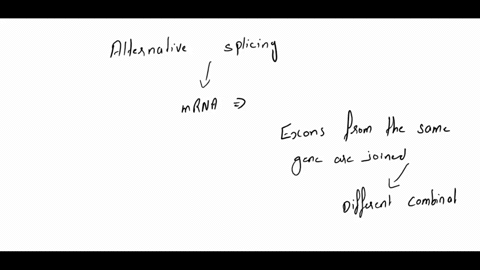 Alternative splicing
mRNA ⇒
Exons from the same
gene are joined
Different combinat